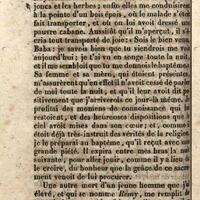 joncs et les herbes; enfin elles me conduisirent
à la pointe d'un bois épais, où le malade s'étoit
fait transporter, et où on lui avoit dressé une
pauvre cabane. Aussitôt qu'il m'aperçut, il s'é-
cria tout transporté de joie: Sois le bien venu,
Baba: je savois bien que tu viendrois me voir
aujourd'hui; je t'ai vu en songe toute la nuit,
et il me sembloit que tu me donnois le baptême.
Sa femme et sa mère, qui étoient présentes,
m'assurèrent qu'en effet il n'avoit cessé de parler
de moi toute la nuit, et qu'il leur avoit dit po-
sitivement que j'arriverois ce jour-là même. Je
profitai des momens de connoissance qui lui
restoient, et des heureuses dispositions que
avoit mises dans son cœur; et, comme
étoit déjà très-instruit des vérités de la religion,
je le préparai au baptême, qu'il reçut avec une
grande piété. Il expira entre mes bras la nuit
suivante, pour aller jouir, comme il y a lieu de
le croire, du bonheur que la grâce de ce sacre-
ment venoit de lui procurer.
Une autre mort d'un jeune homme que j'a
élevé, et qui se nomme Rémy, me remplit